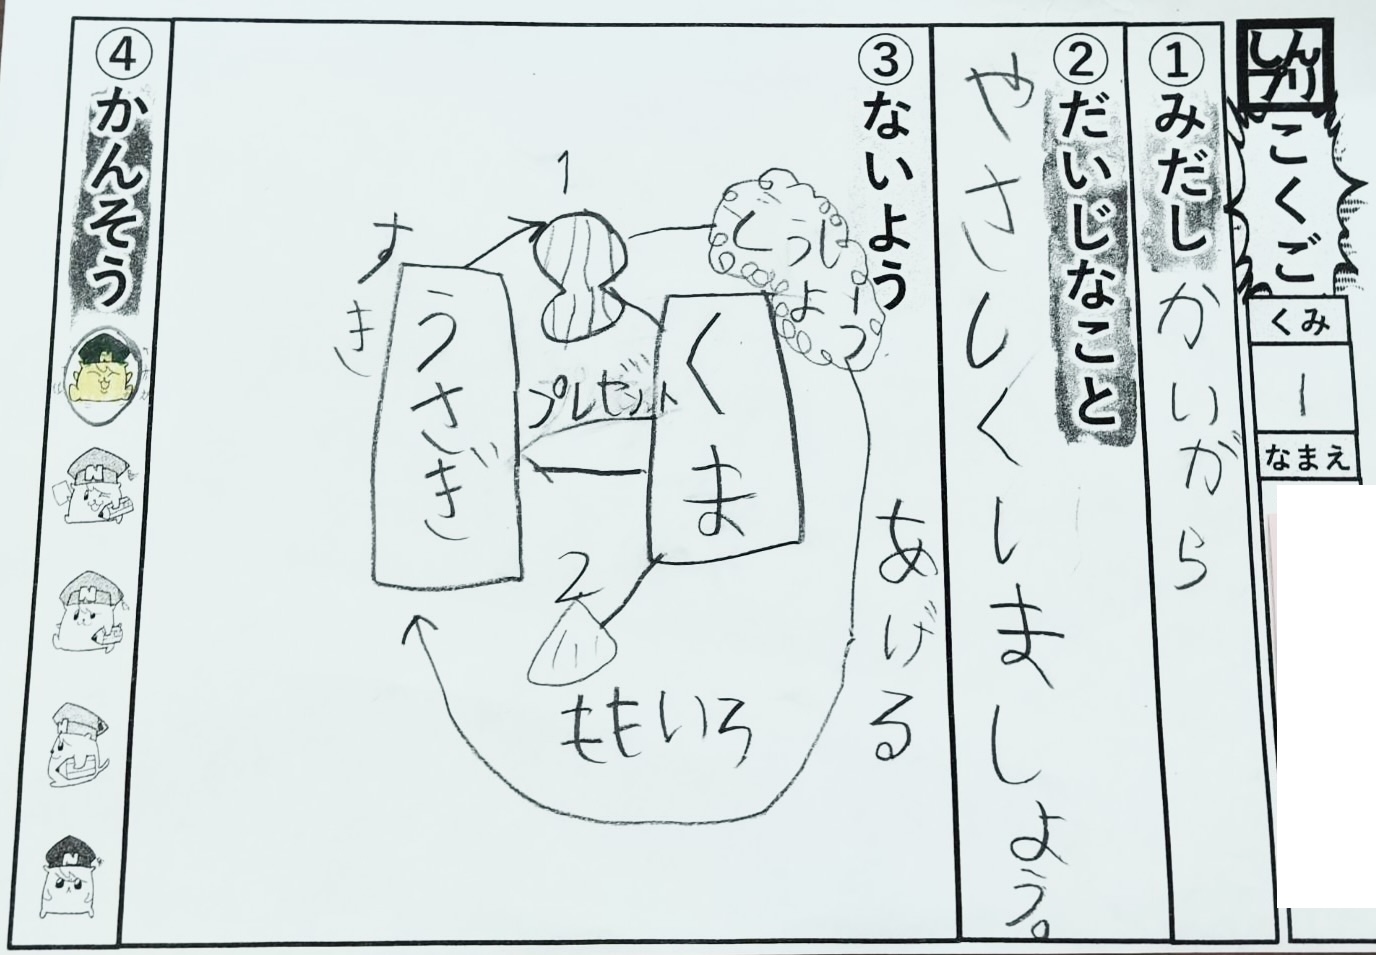 しんプリ
こくご
くみ
1
なまえ
①みだし
かいがら
②だいじなこと
やさしくしましょう。
③ないよう
あげる
くま
1
プレゼント
2
ももいろ
うさぎ
すき
④かんそう